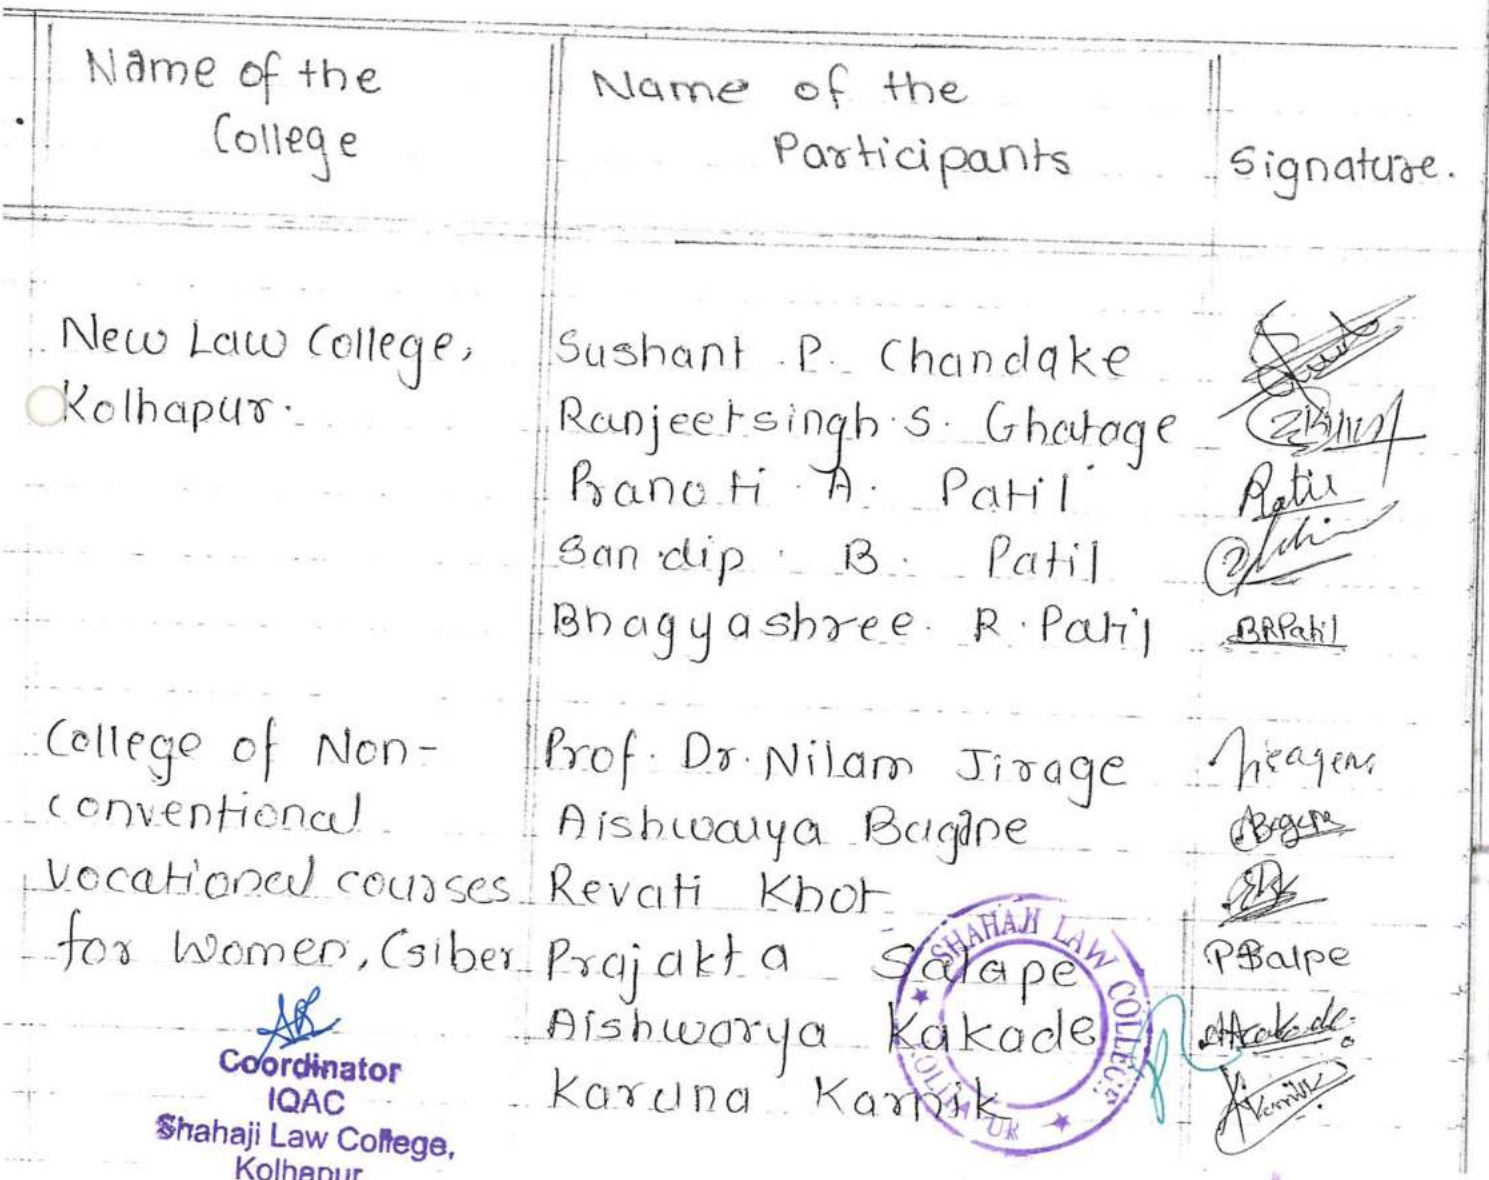 Name of the
College
Name of the
Participants
Signature.
New Law College,
Kolhapur.
Sushant . P. Chandake
Ranjeetsingh . S. Ghatage
Pranoti . A. Patil
Sandip . B. Patil
Bhagyashree . R . Patil
Patil
BRPatil
College of Non-
conventional
vocational courses
for women, Csiber
Prof. Dr. Nilam Jirage
Aishwarya Bagane
Revati Khot
Prajakta Salape
Aishwarya Kakade
Karuna Karnik
SHAHAJI LAW COLLEGE
Coordinator
IQAC
Shahaji Law College,
Kolhapur